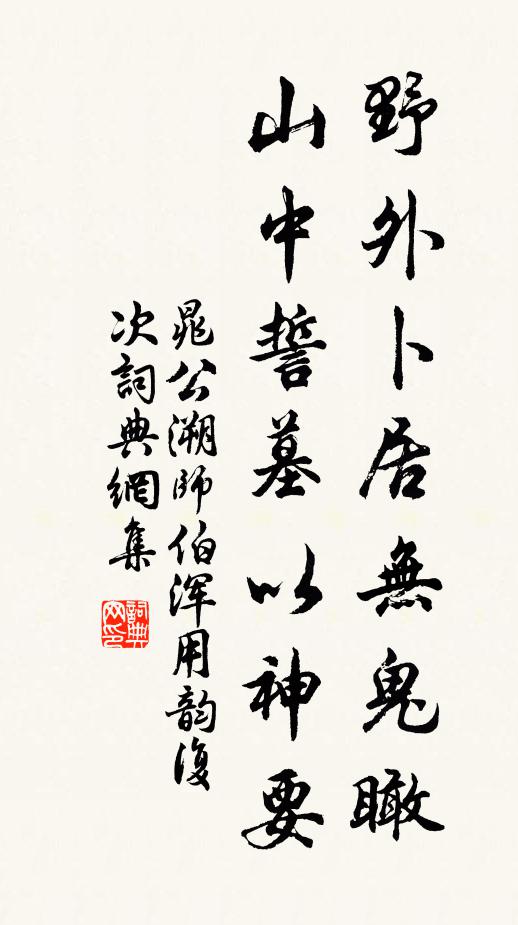 野外卜居無鬼瞰
山中誓墓以神要
晁公溯師伯浑用韵復
次詞典網集
詞典网印